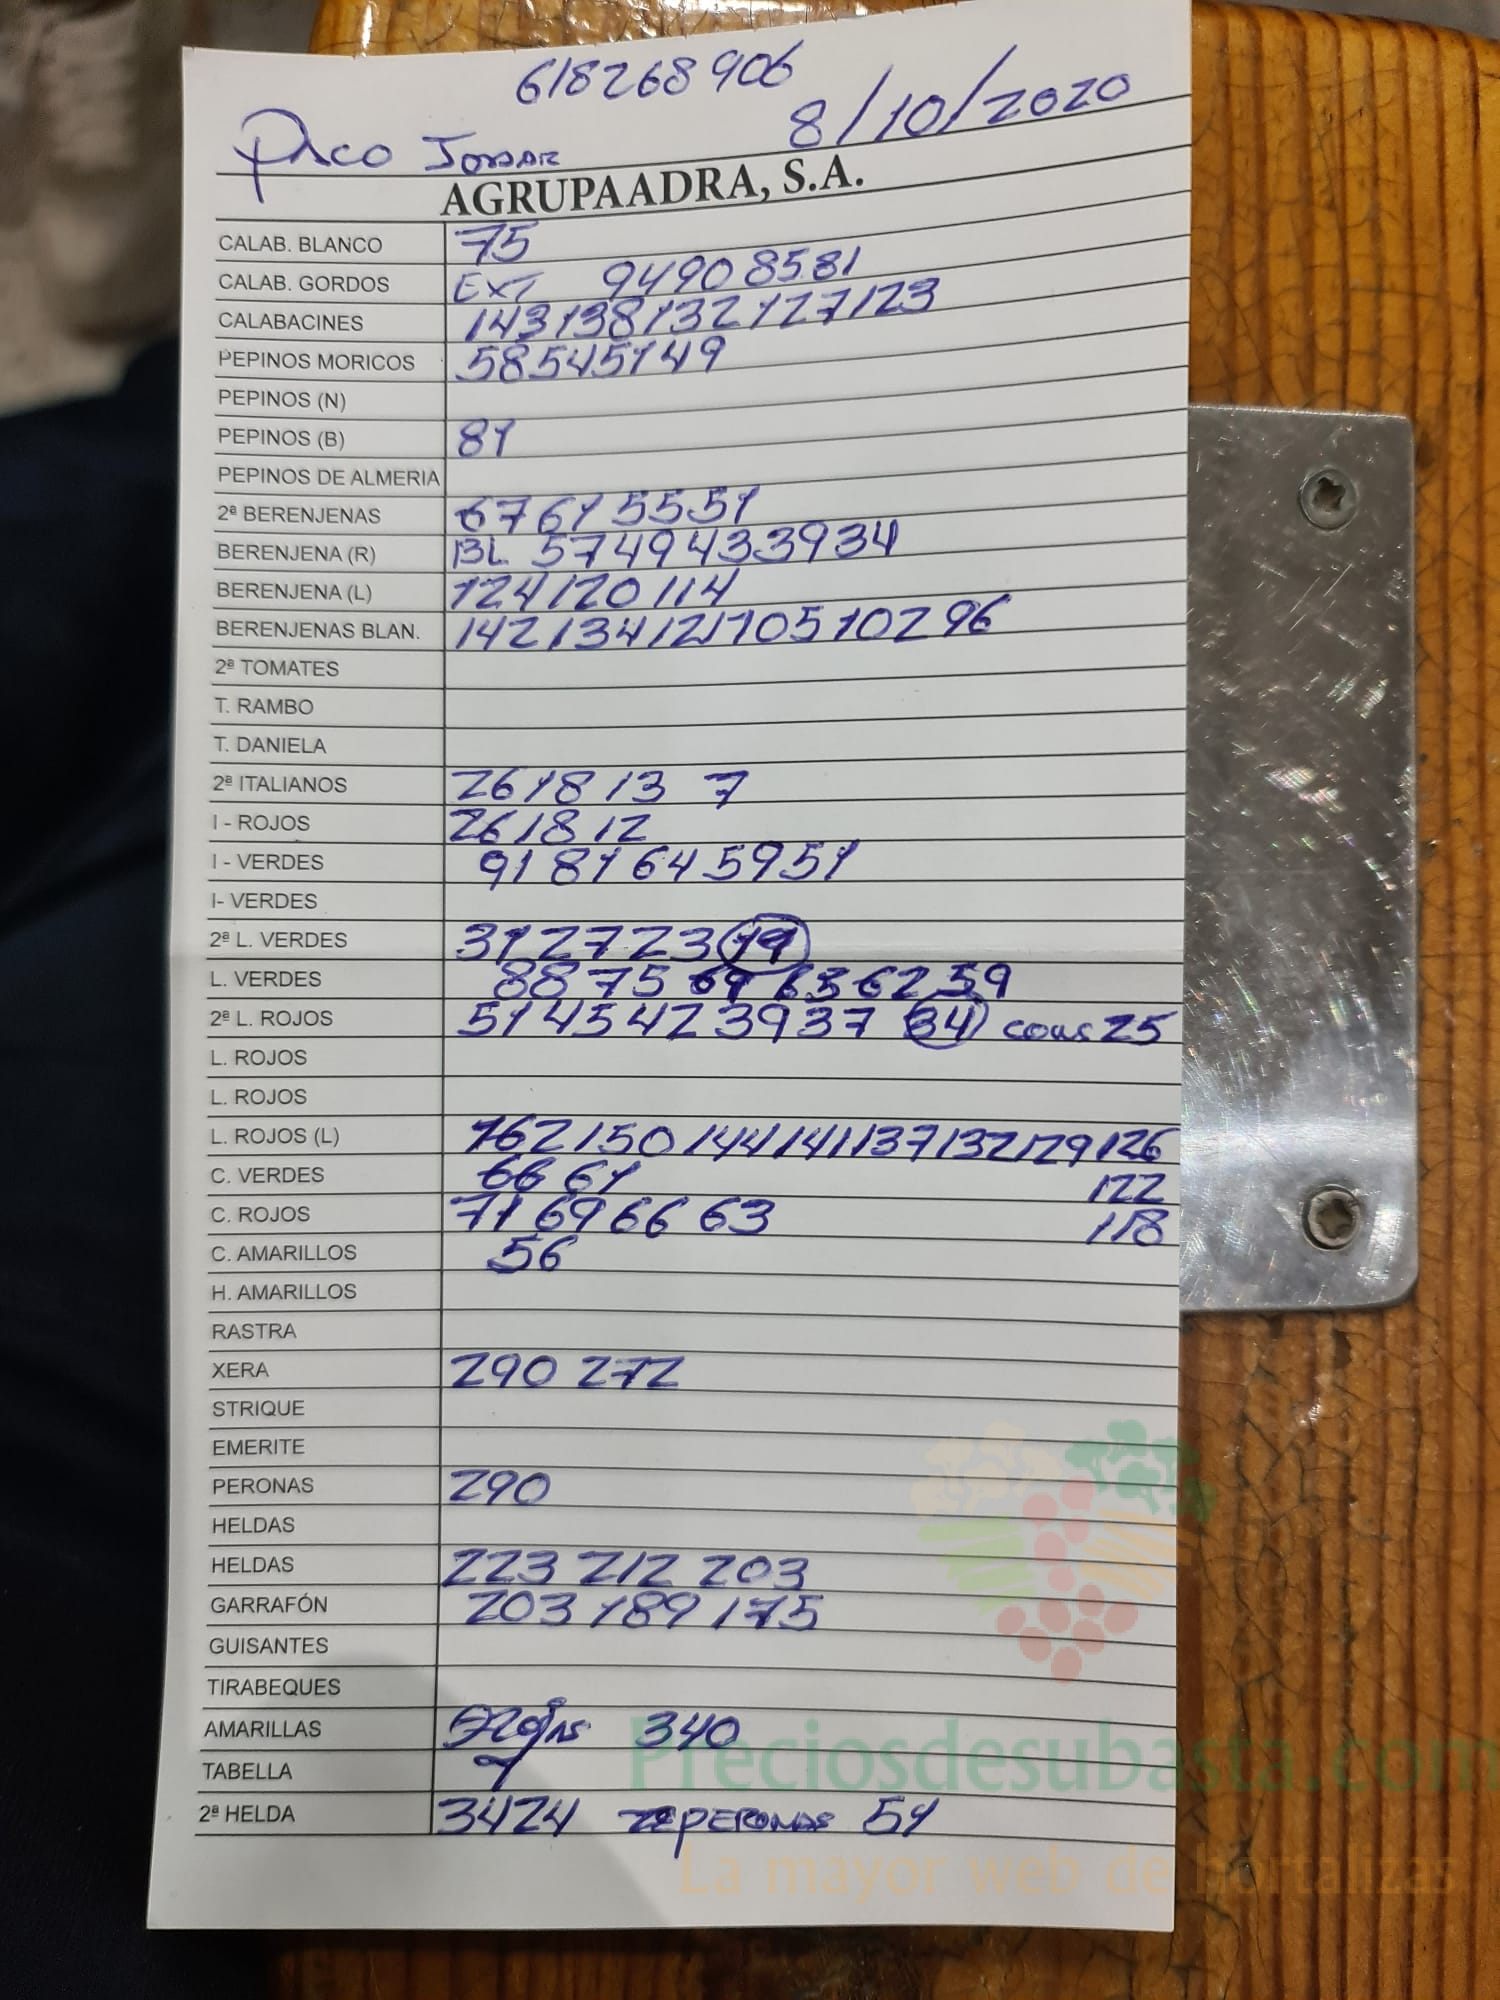 618268906
Paco Jodar 8/10/2020
AGRUPAADRA, S.A.
CALAB. BLANCO 75
CALAB. GORDOS EXT 94 90 85 81
CALABACINES 143 138 132 127 123
PEPINOS MORICOS 58 54 51 49
PEPINOS (N)
PEPINOS (B) 81
PEPINOS DE ALMERIA
2ª BERENJENAS 67 61 55 51
BERENJENA (R) BL 57 49 43 39 34
BERENJENA (L) 124 120 114
BERENJENAS BLAN. 142 134 121 105 102 96
2ª TOMATES
T. RAMBO
T. DANIELA
2ª ITALIANOS 26 18 13 7
I - ROJOS 26 18 12
I - VERDES 91 81 64 59 51
I- VERDES
2ª L. VERDES 31 27 23 19
L. VERDES 88 75 69 63 62 59
2ª L. ROJOS 51 45 42 39 37 34 cous 25
L. ROJOS
L. ROJOS
L. ROJOS (L) 162 150 144 141 137 132 129 126
C. VERDES 66 61 122
C. ROJOS 71 69 66 63 118
C. AMARILLOS 56
H. AMARILLOS
RASTRA
XERA 290 272
STRIQUE
EMERITE
PERONAS 290
HELDAS
HELDAS 223 212 203
GARRAFÓN 203 189 175
GUISANTES
TIRABEQUES
AMARILLAS 340
TABELLA
2ª HELDA 34 24 PERONAS 51
Preciosdesubasta.com
La mayor web de hortalizas